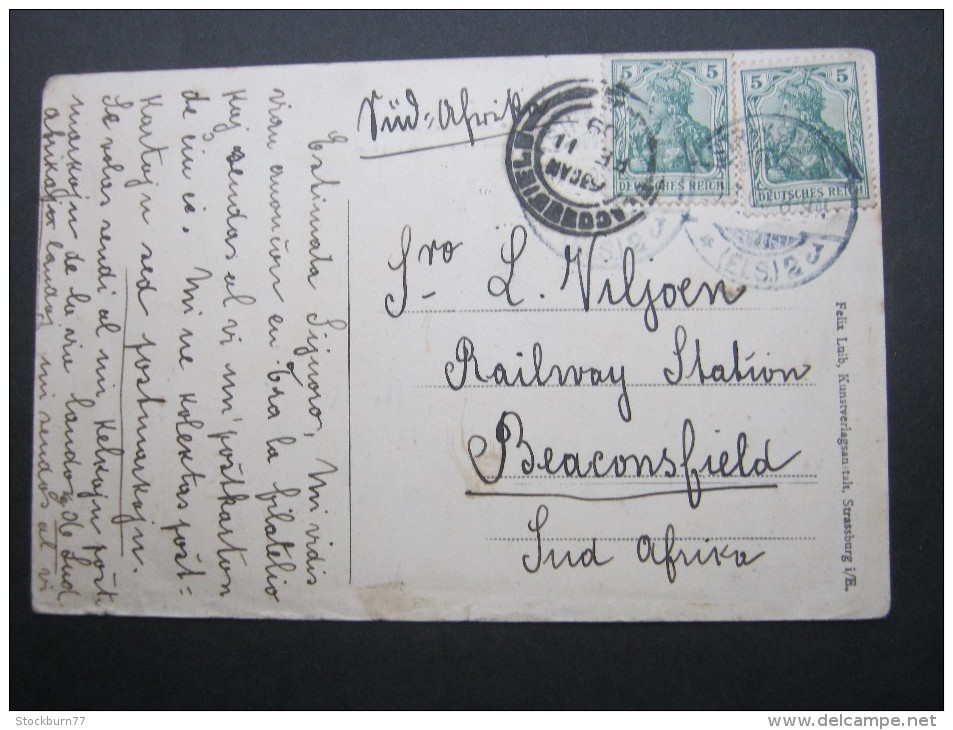 Süd-Afrika
5 5
DEUTSCHES REICH
5 5
DEUTSCHES REICH
BEACONSFIELD
(ELS.) 2 J
* (ELS.) 2 J
Sro L. Viljoen
Railway Station
Beaconsfield
Sud Afrika
Estimata Sijnoro, Mi vidis
vian anoncon en Tra la filatelio
Kaj sendas al vi un' poŝtkarton
de ĉi ie. Mi ne kolektas poŝt-
Kartojn sed postmarkojn.
Se volas sendi al mi kelkajn poŝt
markojn de la viaj landoj de Sud
afrikajoj landoj mi sendos al vi
Felix Luib, Kunstverlagsanstalt, Strassburg i/E.
Stockburn77
www.delcampe.net